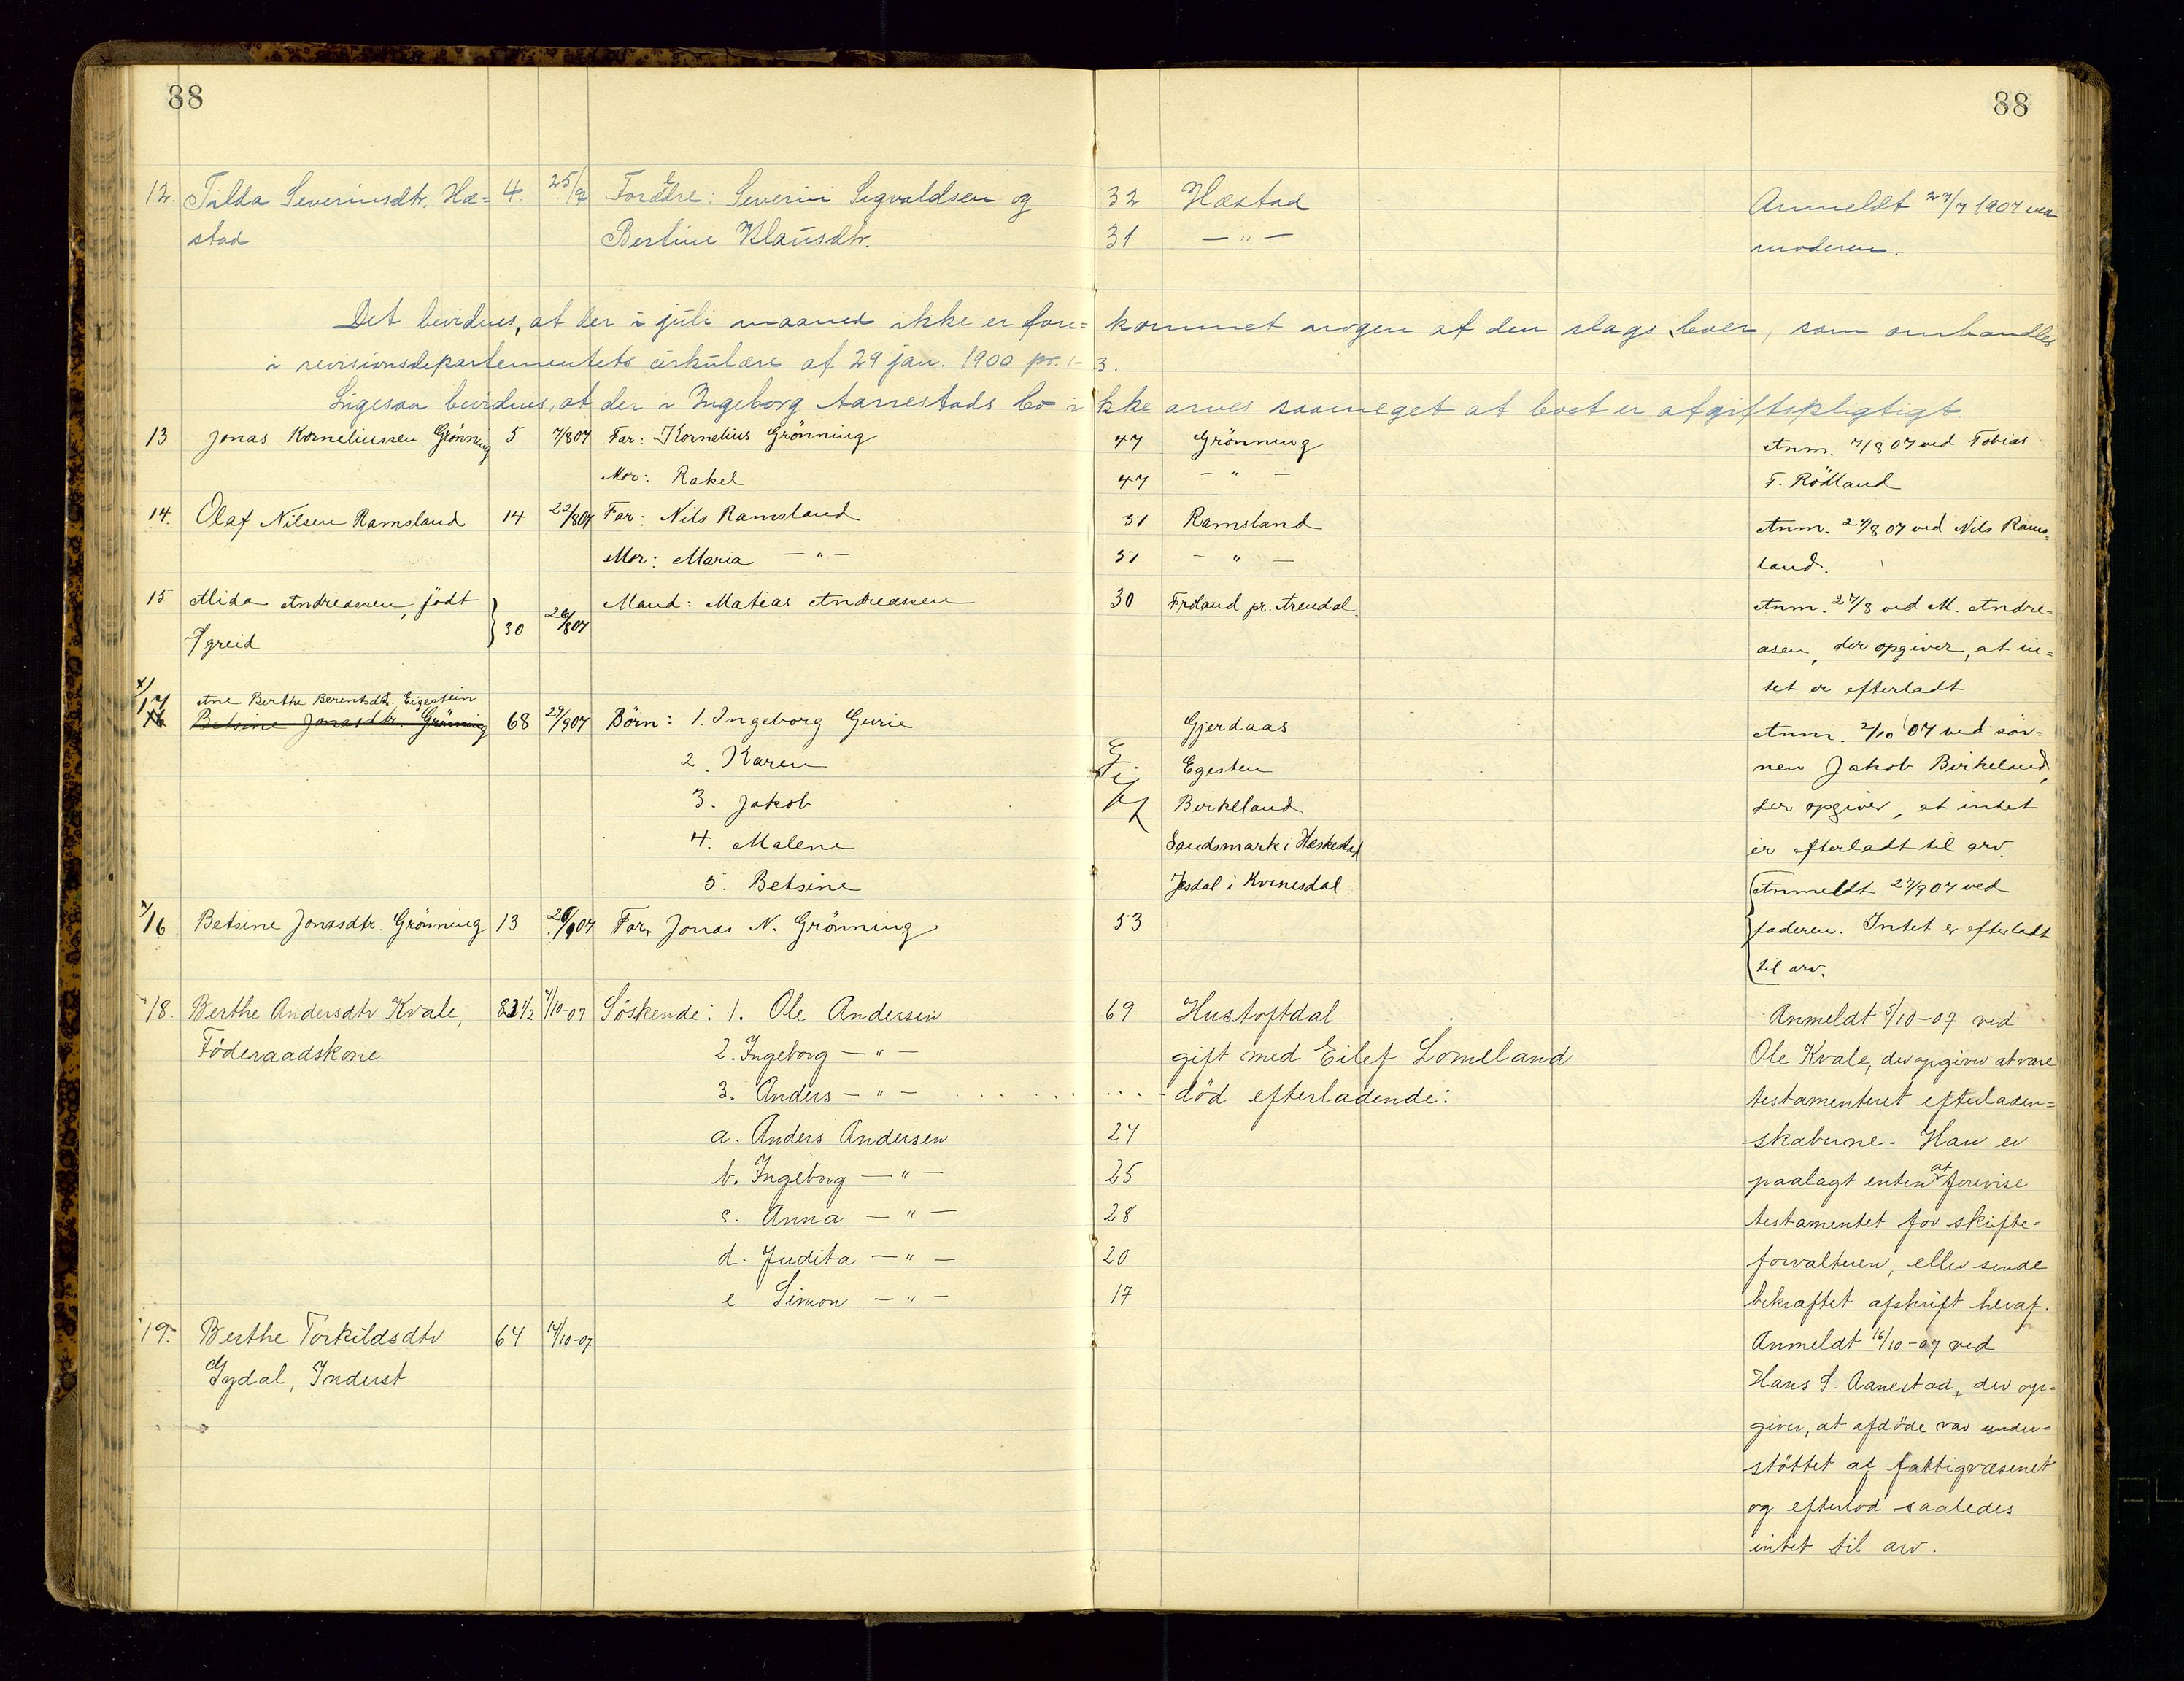 38
88
12. Tilda Severinsdtr. Hæ= 4. 25/7 Forældre: Severin Sigvaldsen og 32 Hæstad Anmeldt 27/7 1907 ved
stad Bertine Klausdtr. 31 — " — moderen.
Det bevidnes, at der i juli maaned ikke er fore= kommet nogen af den slags boer, som omhandles
i revisionsdepartementets cirkulære af 29 jan. 1900 pr. 1- 3.
Ligesaa bevidnes, at der i Ingeborg Aarrestads bo i kke arves saameget at boet er afgiftspligtigt.
13 Jonas Korneliussen Grönning 5 7/807 Far: Kornelius Grönning 47 Grönning Anm. 7/8 07 ved Tobias
Mor: Rakel 47 — " — T. Rödland
14. Olaf Nilsen Ramsland 14 22/807 Far: Nils Ramsland 51 Ramsland Anm. 27/8 07 ved Nils Rams=
Mor: Maria — " — 51 — " — land.
15 Alida Andreassen, födt 30 26/807 Mand: Matias Andreassen 30 Fröland pr. Arendal. Anm. 27/8 ved M. Andre=
Igreid asen, der opgiver, at in=
tet er efterladt
x/ 17 Ane Berthe Berentsdtr. Eigestein
16 Betsine Jonasdtr. Grönning 68 29/907 Börn: 1. Ingeborg Gurie Gjerdaas Anm. 2/10 07 ved sön=
2. Karen Egesten nen Jakob Birkeland,
3. Jakob Birkeland der opgiver, at intet
4. Malene Sandsmark i Heskestad er efterladt til arv.
5. Betsine Jesdal i Kvinesdal Anmeldt 27/907 ved
x/16 Betsine Jonasdtr. Grönning 13 26/907 Far Jonas N. Grönning 53 faderen. Intet er efterladt
til arv.
18. Berthe Andersdtr Kvale, 83 1/2 4/10-07 Söskende: 1. Ole Andersen 69 Hustoftdal Anmeldt 5/10-07 ved
Föderaadskone. 2. Ingeborg — " — gift med Eilef Lomeland Ole Kvale, der opgiver at være
3. Anders — " — . . . . . . - död efterladende: testamenteret efterladen=
a. Anders Andersen 24 skaberne. Han er
b. Ingeborg — " — 25 paalagt enten at forevise
c. Anna — " — 28 testamentet for skifte=
d. Judita — " — 20 forvalteren, eller sende
e Simon — " — 17 bekræftet afskrift heraf.
19. Berthe Torkildsdtr 64 14/10-07 Anmeldt 16/10-07 ved
Gydal, Inderst Hans S. Aanestad, der op=
giver, at afdöde var under=
stöttet af fattigvæsenet
og efterlod saaledes
intet til arv.